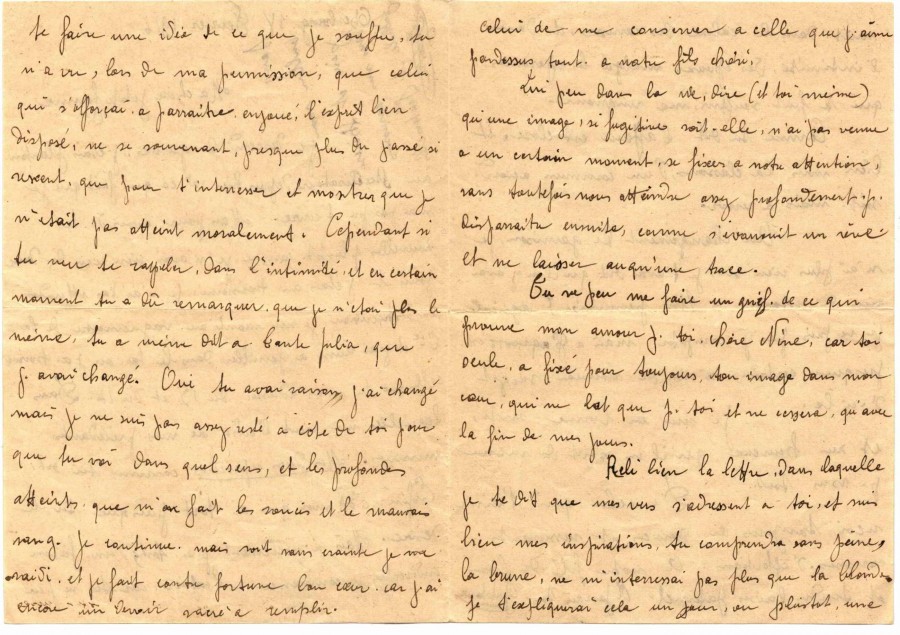 te faire une idée de ce que je souffre, tu
n'a vu, lors de ma permission, que celui
qui s'efforçai a parraitre enjoué, l'esprit bien
disposé, ne se souvenant, presque plus du passé si
rescent, que pour t'interresser et montrer que je
n'etait pas atteint moralement. Cependant si
tu veu te rappeler, dans l'intimité, et en certain
moment tu a dû remarquer, que je n'etai plus le
même, tu a même dit a tante julia, que
j'avai changé. Oui tu avai raison, j'ai changé
mais je ne suis pas assez resté a côte de toi pour
que tu voi dans quel sens, et les profondes
atteintes que m'on fait les soucis et le mauvais
sang. Je continue. mais soit sans crainte je me
raidi, et je fait contre fortune bon cœur. car j'ai
encore un devoir sacré a remplir.
celui de me conserver a celle que j'aime
pardessus tout. a notre fils chéri.
Qui peu dans la vie, dire (et toi même)
qu'une image, si fugitive soit-elle, n'ai pas venue
a un certain moment, se fixer a notre attention,
sans toutefois nous atteindre assez profondement p.
disparaitre ensuite, comme s'evanouit un rêve
et ne laisser auqu'une trace.
Tu ne peu me faire un grief. de ce qui
prouve mon amour p. toi, chère Nine, car toi
seule, a fixé pour toujours, ton image dans mon
cœur, qui ne bat que p. toi et ne cessera, qu'avec
la fin de mes jours.
Reli bien la lettre, dans laquelle
je te dit que mes vers s'adressent a toi, et sui
bien mes inspirations, tu comprendra sans peine,
la brune, ne m'interressai pas plus que la blonde
je t'expliquerai cela un jour, ou plustot, une